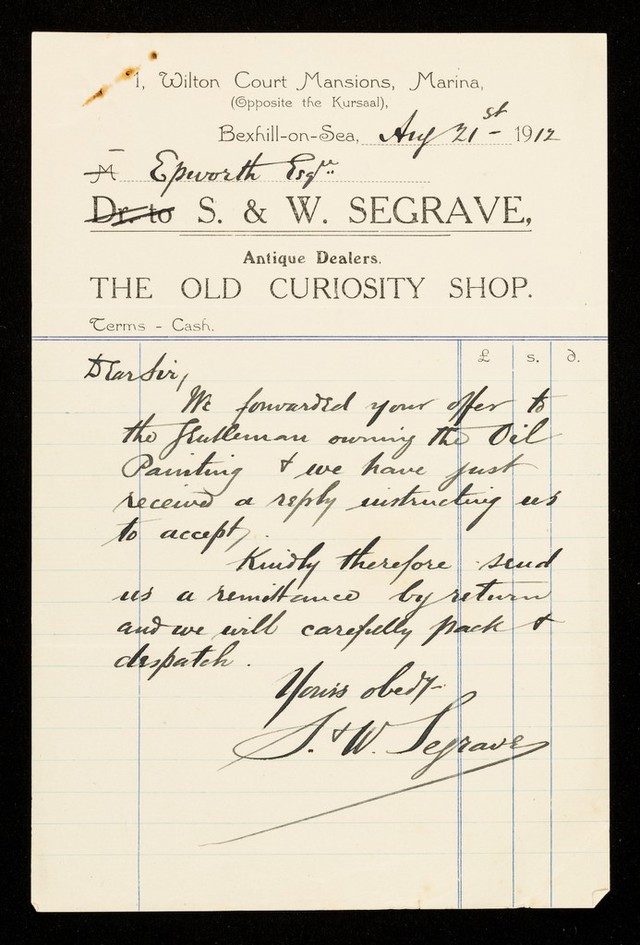 1, Wilton Court Mansions, Marina,
(Opposite the Kursaal),
Bexhill-on-Sea, Aug 21st - 1912
M Epworth Esqre
Dr. to S. & W. SEGRAVE,
Antique Dealers.
THE OLD CURIOSITY SHOP.
Terms - Cash.
£ s. d.
Dear Sir,
We forwarded your offer to
the Gentleman owning the Oil
Painting & we have just
received a reply instructing us
to accept.
Kindly therefore send
us a remittance by return
and we will carefully pack &
despatch.
Yours obedy
S. & W. Segrave